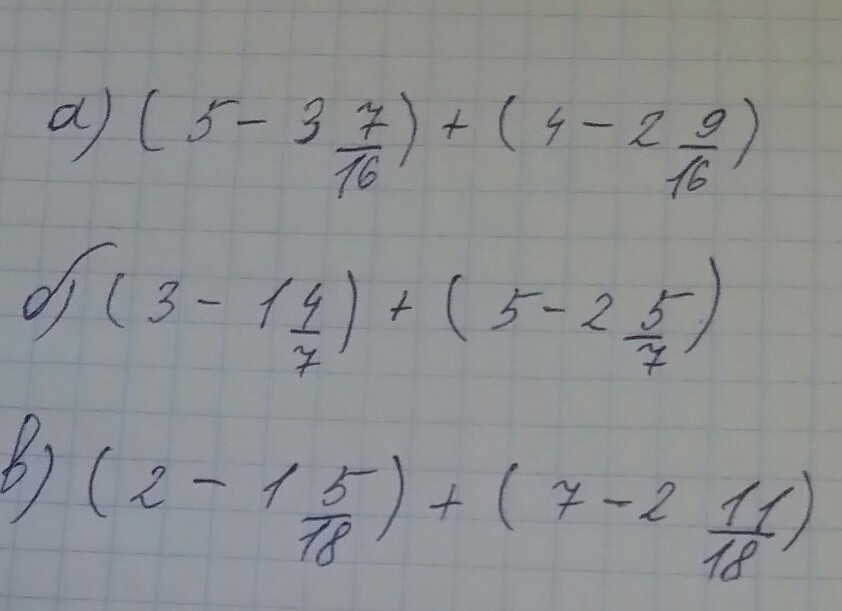 а) (5 - 3 7/16) + (4 - 2 9/16)
б) (3 - 1 4/7) + (5 - 2 5/7)
в) (2 - 1 5/18) + (7 - 2 11/18)